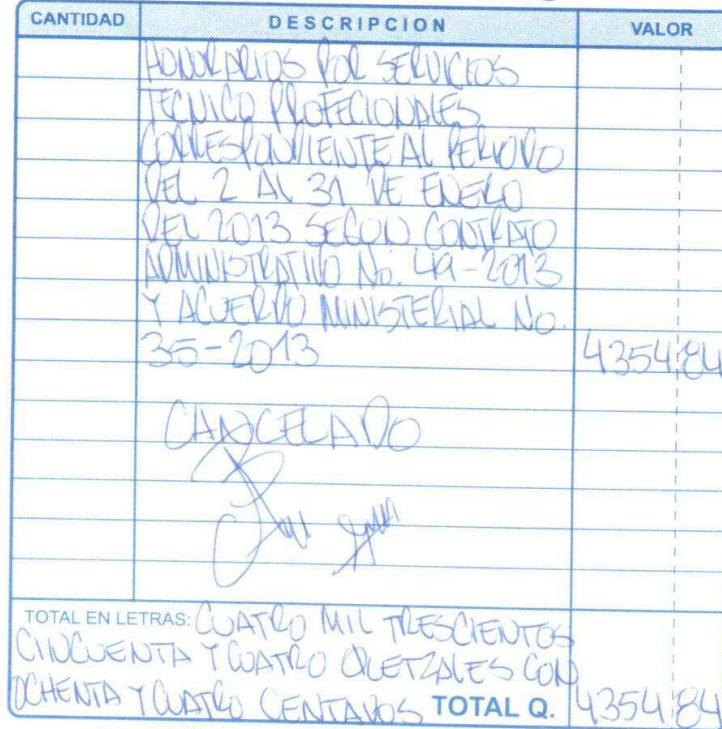 CANTIDAD DESCRIPCION VALOR
HONORARIOS POR SERVICIOS
TECNICO PROFECIONALES
CORRESPONDIENTE AL PERIODO
DEL 2 AL 31 DE ENERO
DEL 2013 SEGUN CONTRATO
ADMINISTRATIVO No. 49-2013
Y ACUERDO MINISTERIAL No.
35-2013 4354.84
CANCELADO
TOTAL EN LETRAS: CUATRO MIL TRESCIENTOS
CINCUENTA Y CUATRO QUETZALES CON
OCHENTA Y CUATRO CENTAVOS TOTAL Q. 4354.84